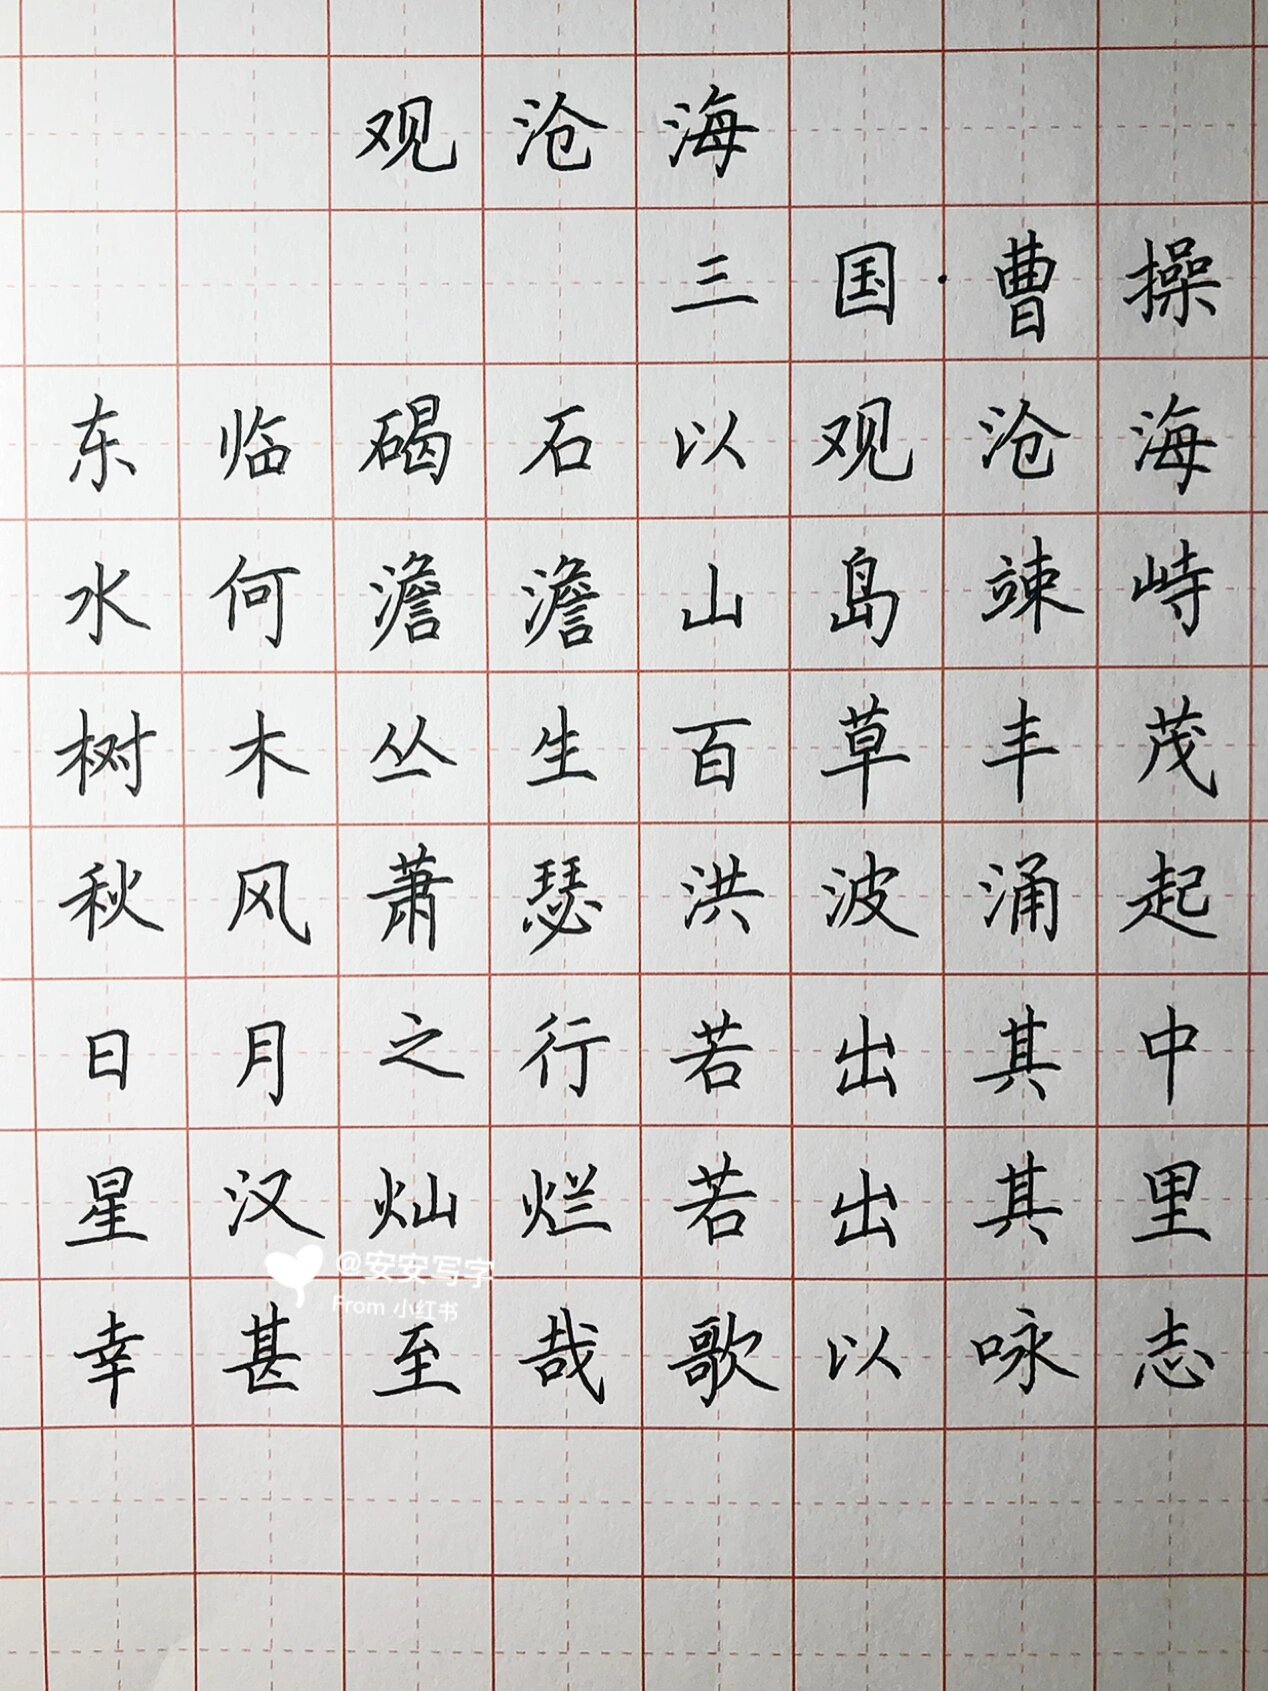 观沧海
三国·曹操
东临碣石以观沧海
水何澹澹山岛竦峙
树木丛生百草丰茂
秋风萧瑟洪波涌起
日月之行若出其中
星汉灿烂若出其里
@安安写字
From 小红书
幸甚至哉歌以咏志